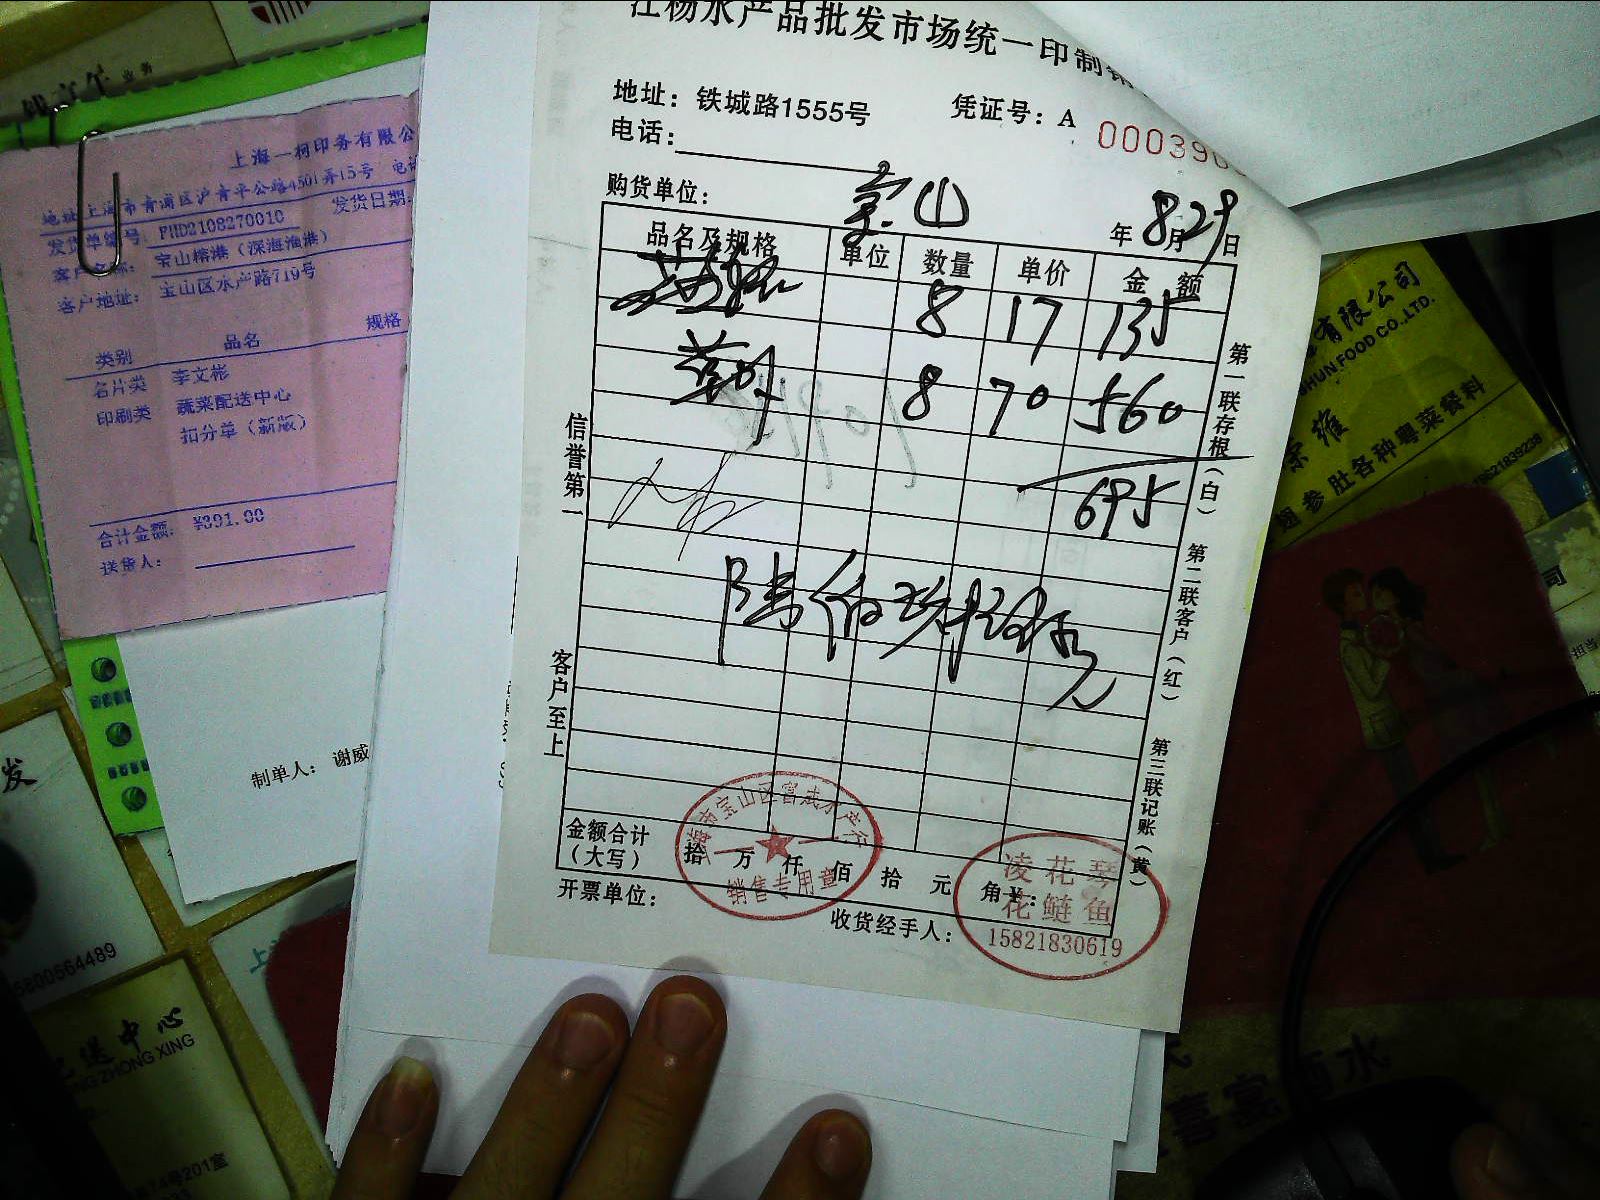 江杨水产品批发市场统一印制销
地址：铁城路1555号
凭证号：A 00039
电话：
购货单位：宝山
年8月29日
品名及规格 单位 数量 单价 金额
8 17 135
8 70 560
695
陆佰玖拾伍元
金额合计（大写） 拾 万 仟 佰 拾 元 角 ¥：
开票单位：
收货经手人：
信誉第一
客户至上
第一联存根（白）
第二联客户（红）
第三联记账（黄）
销售专用章
凌花琴
花鲢鱼
15821830619
上海一柯印务有限公
地址上海市青浦区沪青平公路4501弄15号 电话
发货单编号：FHD2108270010
发货日期：
客户名称：宝山榕港（深海渔港）
客户地址：宝山区水产路719号
类别 品名 规格
名片类 李文彬
印刷类 蔬菜配送中心
扣分单（新版）
合计金额：¥391.00
送货人：
制单人：谢威
业务
发
5800564489
配送中心
NG ZHONG XING
74号201室
有限公司
HUN FOOD CO.,LTD.
翅参肚各种粤菜餐料
18621839238
司
担当
喜宴酒水